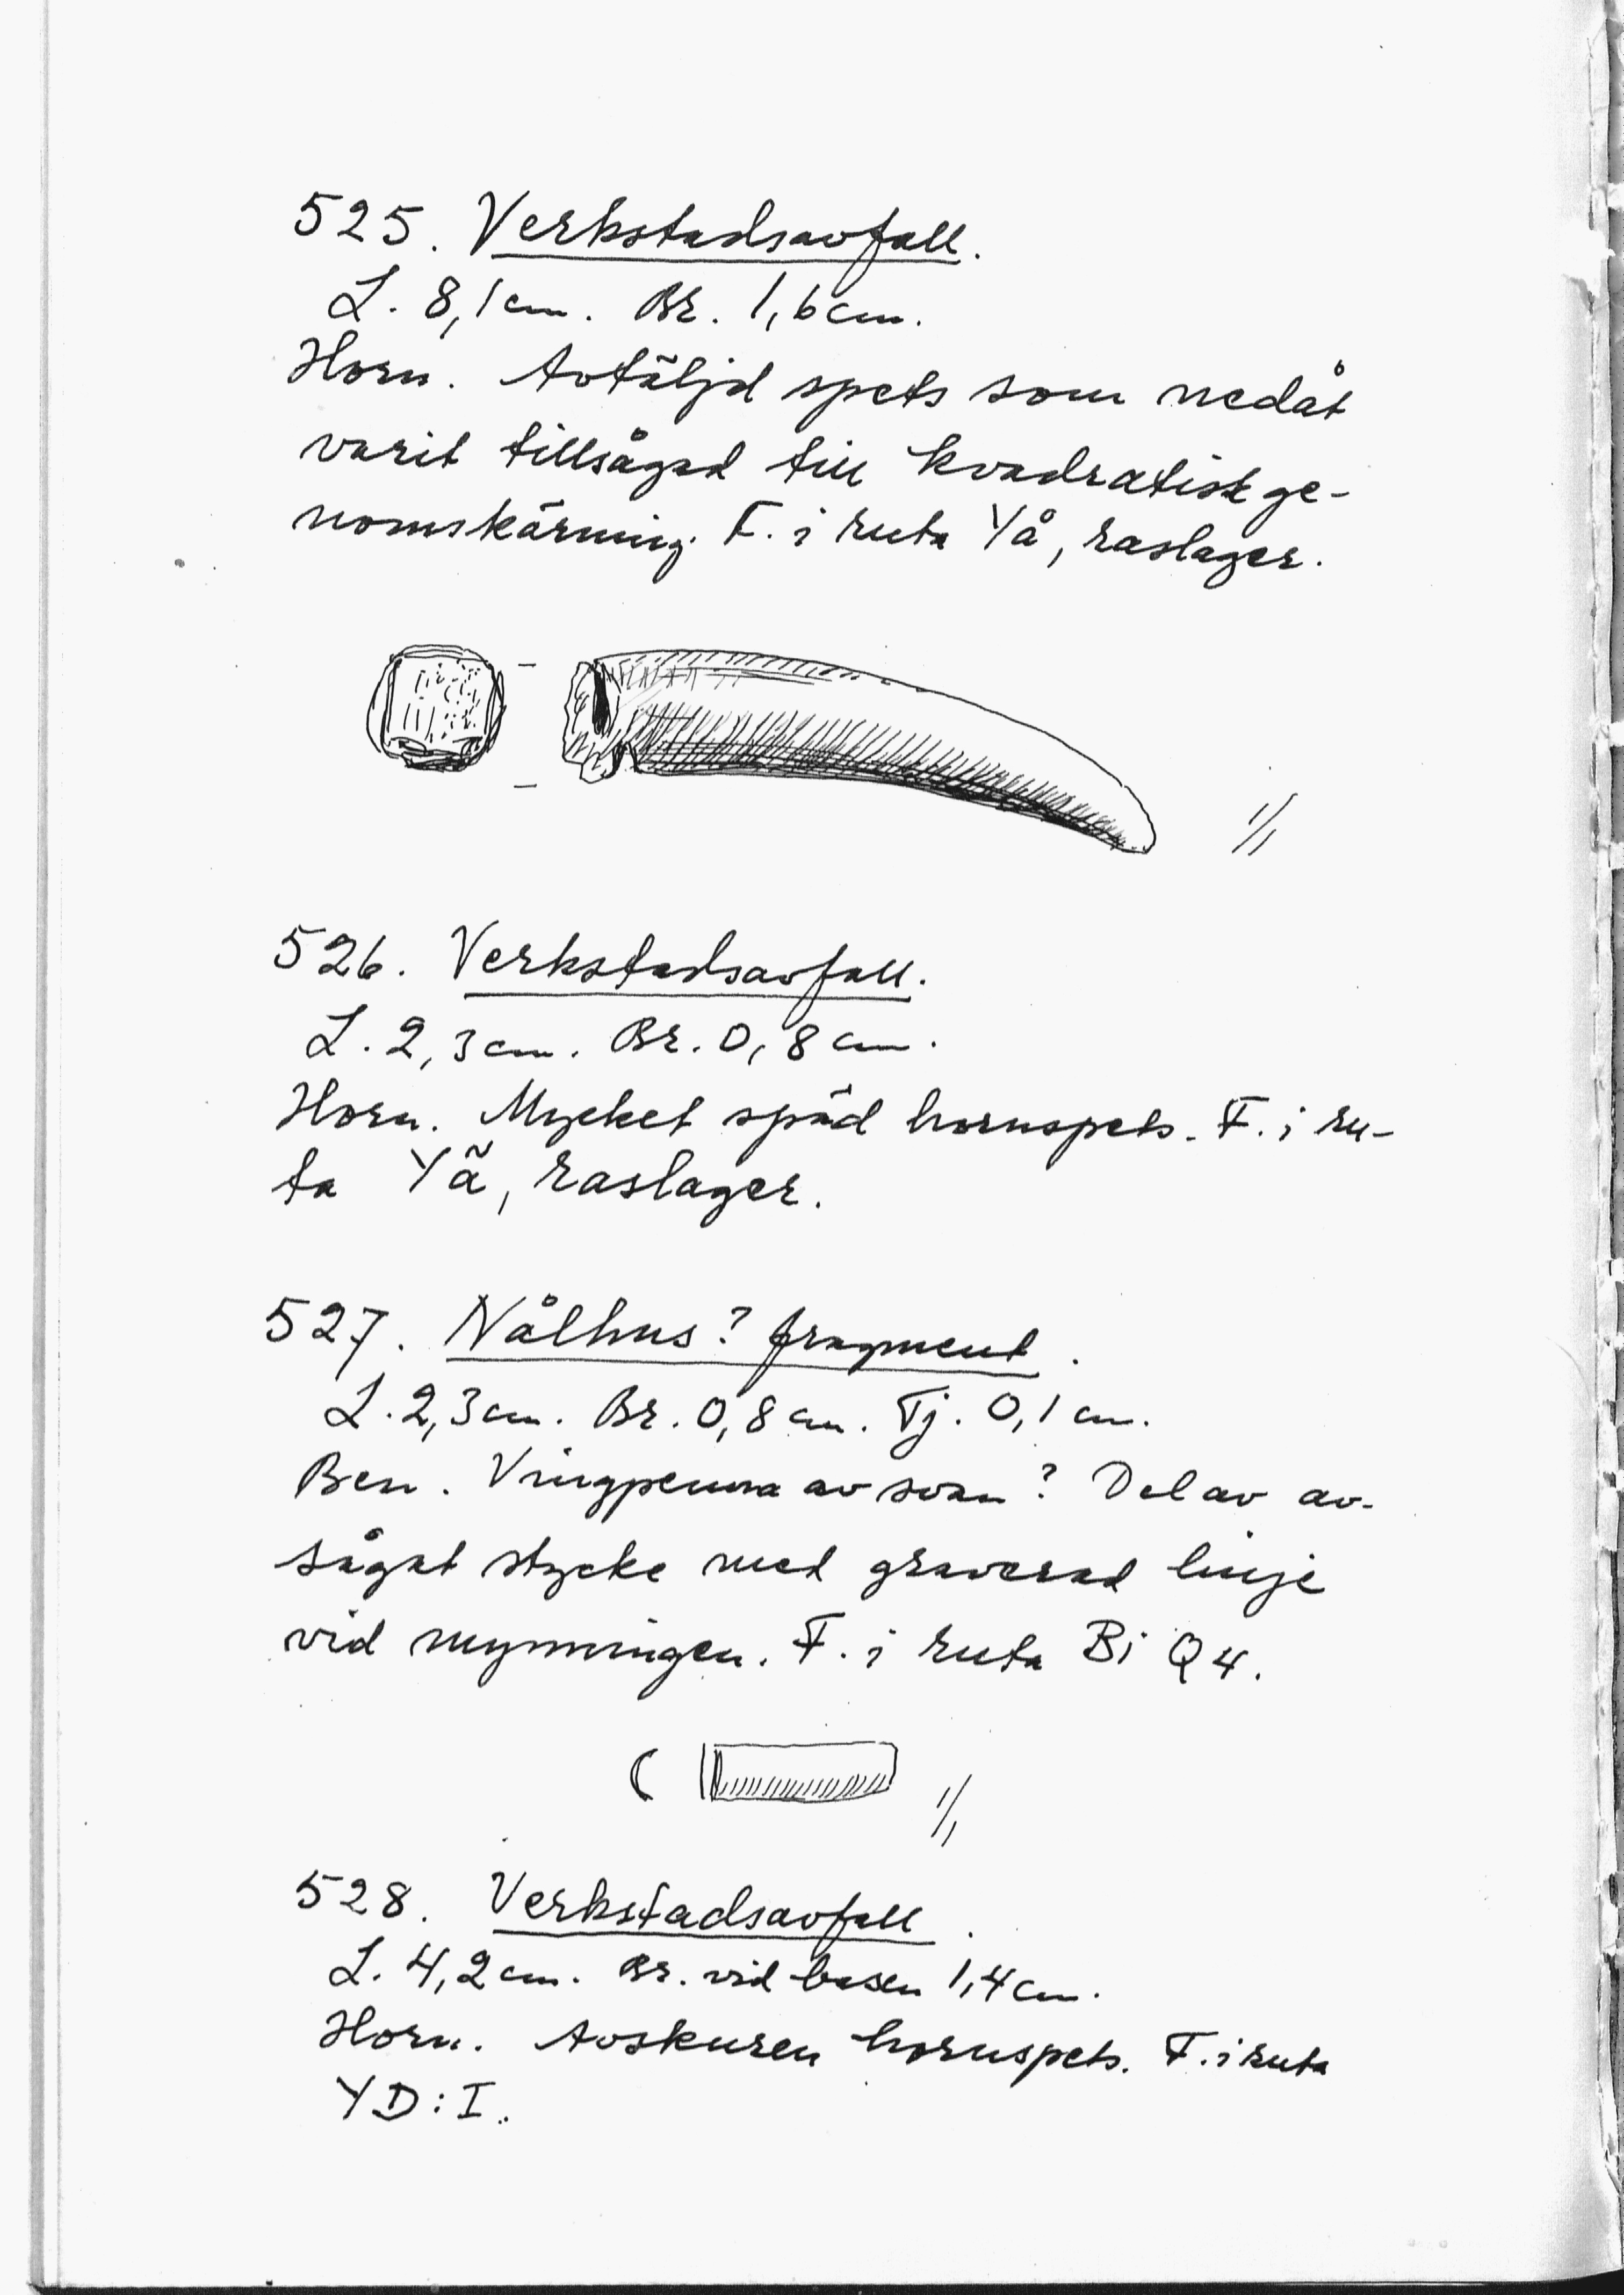 525. Verkstadsavfall.
L. 8,1 cm. Br. 1,6 cm.
Horn. Avtäljd spets som nedåt
varit tillsågad till kvadratisk ge-
nomskärning. F. i ruta Yå, raslager.
1/1
526. Verkstadsavfall.
L. 2,3 cm. Br. 0,8 cm.
Horn. Mycket späd hornspets. F. i ru-
ta Yä, raslager.
527. Nålhus? fragment.
L. 2,3 cm. Br. 0,8 cm. Tj. 0,1 cm.
Ben. Vingpenna av svan? Del av av-
sågat stycke med graverad linje
vid mynningen. F. i ruta Bi Q4.
1/1
528. Verkstadsavfall.
L. 4,2 cm. Br. vid basen 1,4 cm.
Horn. Avskuren hornspets. F. i ruta
YD: I.